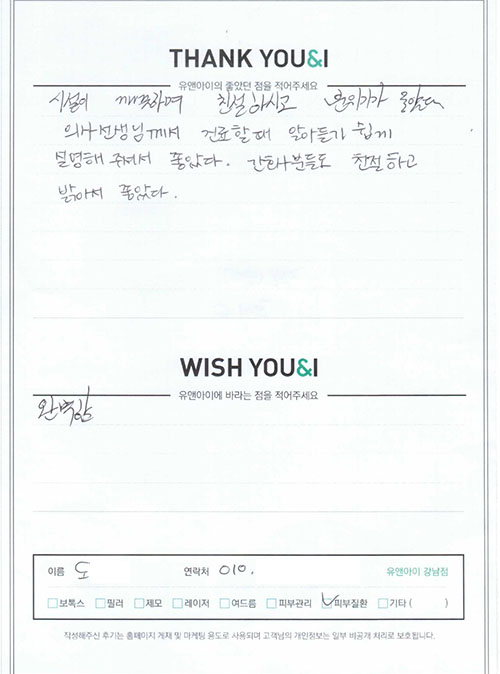 THANK YOU&I
유앤아이의 좋았던 점을 적어주세요
시설이 깨끗하며 친절하시고 분위기가 좋았다
의사선생님께서 진료할때 알아듣기 쉽게
설명해 주셔서 좋았다. 간호사분들도 친절하고
밝아서 좋았다.
WISH YOU&I
유앤아이에 바라는 점을 적어주세요
완벽함
이름 도 연락처 010. 유앤아이 강남점
보톡스 필러 제모 레이저 여드름 피부관리 피부질환 기타 ( )
작성해주신 후기는 홈페이지 게재 및 마케팅 용도로 사용되며 고객님의 개인정보는 일부 비공개 처리로 보호됩니다.